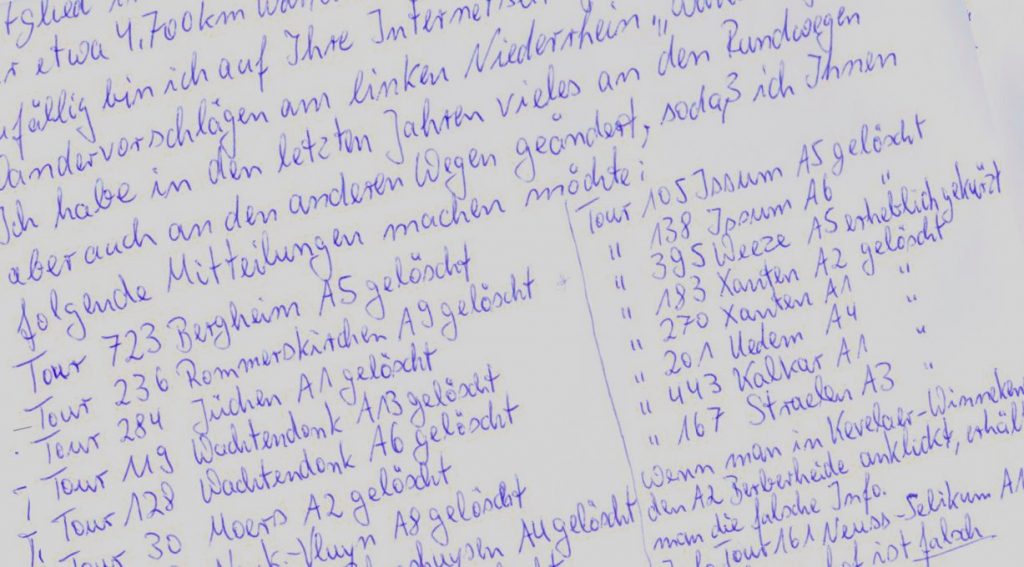 etwa 4.700km
bin ich auf Ihre
Wandervorschlägen am linken Niederrhein
Ich habe in den letzten Jahren vieles an den Rundwegen
aber auch an den anderen Wegen geändert, sodaß ich Ihnen
folgende Mitteilungen machen möchte:
Tour 723 Bergheim A5 gelöscht
- Tour 236 Rommerskirchen A9 gelöscht
Tour 284 Jüchen A1 gelöscht
- Tour 119 Wachtendonk A13 gelöscht
Tour 128 Wachtendonk A6 gelöscht
Tour 30 Moers A2 gelöscht
Vluyn A8 gelöscht
A4 gelöscht
Tour 105 Issum A5 gelöscht
" 138 Issum A6 "
" 395 Weeze A5 erheblich gekürzt
" 183 Xanten A2 gelöscht
" 270 Xanten A1 "
" 201 Uedem A4 "
" 443 Kalkar A1 "
" 167 Straelen A3 "
Wenn man in Kevelaer-Winneken
den A2 Berberheide anklickt, erhäl
man die falsche Info.
Tour 161 Neuss-Selikum A1
ist falsch